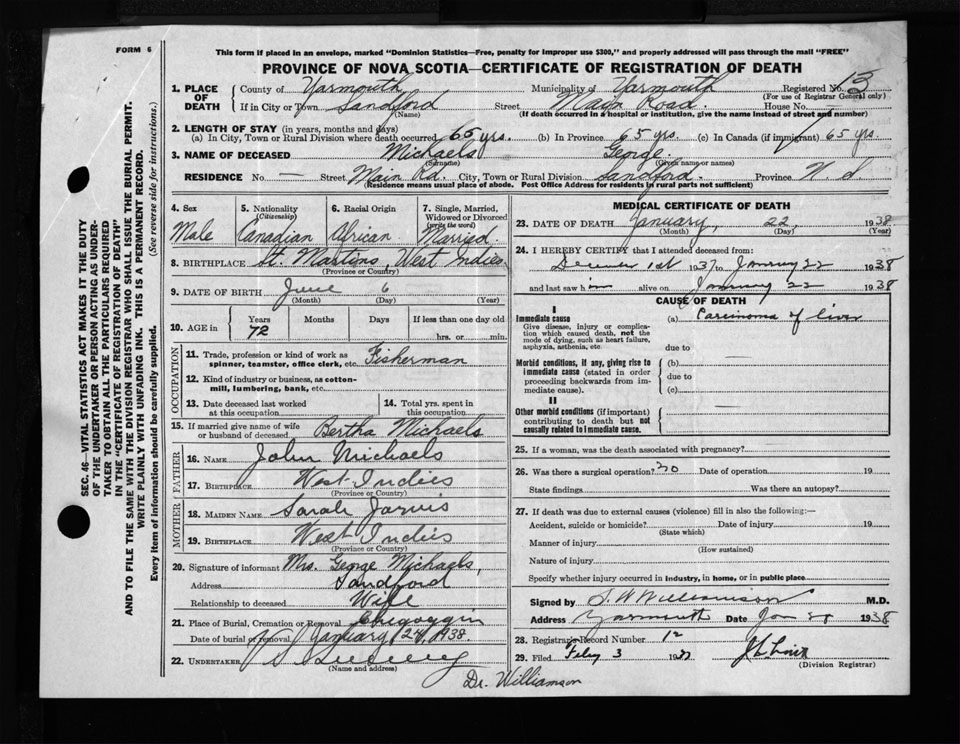 FORM 6
This form if placed in an envelope, marked "Dominion Statistics—Free, penalty for improper use $300," and properly addressed will pass through the mail "FREE"
PROVINCE OF NOVA SCOTIA—CERTIFICATE OF REGISTRATION OF DEATH
1. PLACE OF DEATH County of Yarmouth Municipality of Yarmouth Registered No. 13
(For use of Registrar General only)
If in City or Town Sandford Street Main Road. House No.
(Name) (If death occurred in a hospital or institution, give the name instead of street and number)
2. LENGTH OF STAY (in years, months and days)
(a) In City, Town or Rural Division where death occurred 65 yrs. (b) In Province 65 yrs. (c) In Canada (if immigrant) 65 yrs
3. NAME OF DECEASED Michaels George
(Surname) (Given name or names)
RESIDENCE No. — Street Main Rd. City, Town or Rural Division Sandford. Province N S
(Residence means usual place of abode. Post Office Address for residents in rural parts not sufficient)
4. Sex Male
5. Nationality (Citizenship) Canadian
6. Racial Origin African
7. Single, Married, Widowed or Divorced (write the word) Married
8. BIRTHPLACE St. Martins, West Indies
(Province or Country)
9. DATE OF BIRTH June 6
(Month) (Day) (Year)
10. AGE in Years 72 Months Days If less than one day old hrs. or min.
OCCUPATION
11. Trade, profession or kind of work as spinner, teamster, office clerk, etc. Fisherman
12. Kind of industry or business, as cotton-mill, lumbering, bank, etc.
13. Date deceased last worked at this occupation
14. Total yrs. spent in this occupation
15. If married give name of wife or husband of deceased Bertha Michaels
FATHER
16. NAME John Michaels
17. BIRTHPLACE West Indies
(Province or Country)
MOTHER
18. MAIDEN NAME Sarah Jarvis
19. BIRTHPLACE West Indies
(Province or Country)
20. Signature of informant Mrs. George Michaels,
Address Sandford
Relationship to deceased Wife
21. Place of Burial, Cremation or Removal Chegoggin
Date of burial or removal January 24, 1938.
22. UNDERTAKER
(Name and address)
MEDICAL CERTIFICATE OF DEATH
23. DATE OF DEATH January, 22, 1938
(Month) (Day) (Year)
24. I HEREBY CERTIFY that I attended deceased from:
December 1st 1937 to January 22 1938
and last saw him alive on January 22 1938
CAUSE OF DEATH
I
Immediate cause (a) Carcinoma of liver
Give disease, injury or complication which caused death, not the mode of dying, such as heart failure, asphyxia, asthenia, etc
due to
Morbid conditions, if any, giving rise to immediate cause (stated in order proceeding backwards from immediate cause).
(b)
due to
(c)
II
Other morbid conditions (if important) contributing to death but not causally related to immediate cause.
25. If a woman, was the death associated with pregnancy?
26. Was there a surgical operation? no Date of operation 19
State findings Was there an autopsy?
27. If death was due to external causes (violence) fill in also the following:—
Accident, suicide or homicide? Date of injury 19
(State which)
Manner of injury
(How sustained)
Nature of injury
Specify whether injury occurred in industry, in home, or in public place
Signed by Williamson M.D.
Address Yarmouth Date Jan 1938
28. Registrar's Record Number 12
29. Filed Feby 3 19
(Division Registrar)
Dr. Williamson
SEC. 46—VITAL STATISTICS ACT MAKES IT THE DUTY OF THE UNDERTAKER OR PERSON ACTING AS UNDERTAKER TO OBTAIN ALL THE PARTICULARS REQUIRED IN THE "CERTIFICATE OF REGISTRATION OF DEATH" AND TO FILE THE SAME WITH THE DIVISION REGISTRAR WHO SHALL ISSUE THE BURIAL PERMIT.
WRITE PLAINLY WITH UNFADING INK. THIS IS A PERMANENT RECORD.
Every item of information should be carefully supplied. (See reverse side for instructions.)